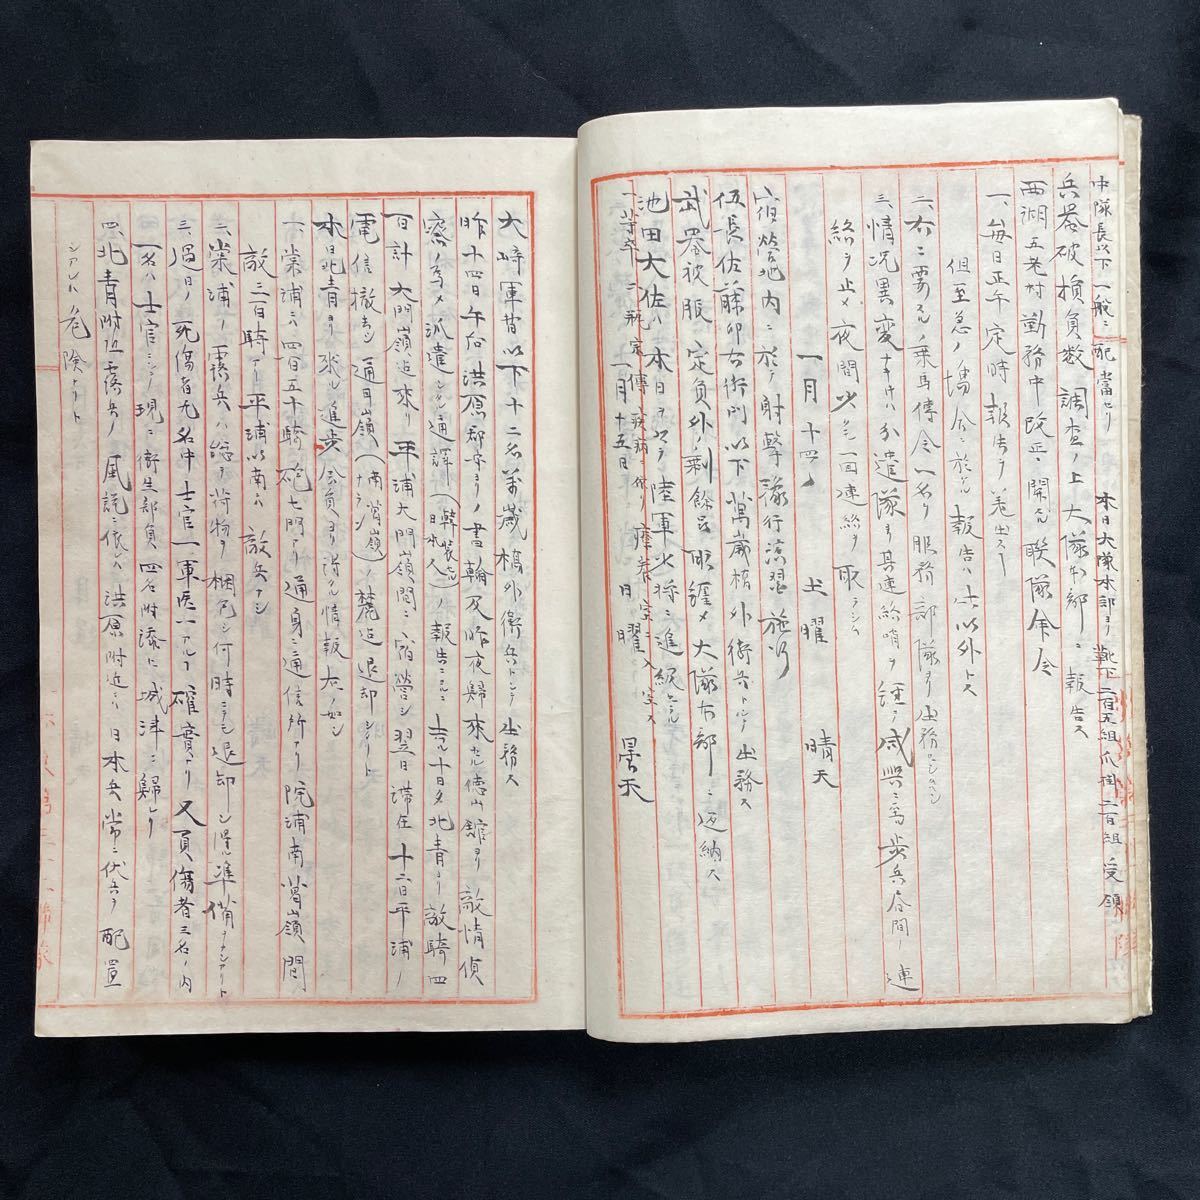 中隊長以下一般ニ配當セリ 本日大隊本部ヨリ靴下二百五組爪掛二百組受領
兵器破損員数調査ノ上大隊本部ニ報告ス
西湖五老村勤務中改正ニ関スル聯隊命令
一、毎日正午定時報告ヲ差出スヿ
但至急ノ場合ニ於ケル報告ハ此以外トス
二、右ニ要スル乗馬傳令一名ヲ服務部隊ヨリ出務セシム
三、情況異変ナキトキハ分遣隊ヨリ其連絡哨ヲ經テ咸興ニ至ル歩兵各間ノ連
絡ヲ止メ夜間少ナクモ一回連絡ヲ取ラシム
一月十四日 土曜 晴天
宿営地内ニ於テ射撃豫行演習施行
伍長佐藤卯右衛門以下萬歳橋外衛兵トシテ出務ス
武器被服定員外ノ剰餘品取纏メ大隊本部ニ返納ス
池田大佐ハ本日ヲ以テ陸軍少将ニ進級セラル
一等卒二瓶定傳疾病ニ依リ療養室ニ入室ス
一月十五日 日曜 曇天
大崎軍曹以下十二名萬歳橋外衛兵トシテ出務ス
昨十四日午后洪原郡守ヨリノ書翰及昨夜歸来セル徳山舘ヨリ敵情偵
察ノ為メ派遣シタル通譯(韓装セル日本人)ノ報告ニヨルニ去ル十日夕北青ヨリ敵騎四
百計大門嶺迄来リ平浦大門嶺間ニ宿営シ翌日滞在十二日平浦ノ
電信撤去シ通目嶺(南営嶺ナラン)麓迄退却シタリト
本日北青ヨリ来ル進歩会員ヨリ得タル情報左ノ如シ
一、棠浦ニハ四百五十騎砲七門アリ通身ニ通信所アリ院浦南営嶺間
敵二百騎アリ平浦以南ニハ敵兵ナシ
二、棠浦ノ露兵ハ総テ荷物ヲ梱包シ何時ニテモ退却シ得ル準備ヲナシアリト
三、過日ノ死傷者九名中士官一軍医一アルヿ確實ナリ又負傷者三名ノ内
一名ハ士官ニシテ現ニ衛生部員四名附添ヒ城津ニ歸レリ
四、北青附近露兵ノ風説ニ依レハ洪原附近ニハ日本兵常ニ伏兵ヲ配置
シアレハ危険ナリト